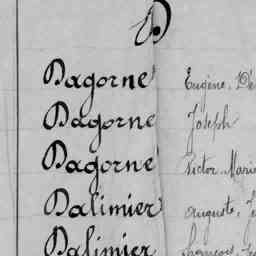 D
Dagorne Eugène
Dagorne Joseph
Dagorne Victor Marie
Dalimier Auguste
Dalimier François